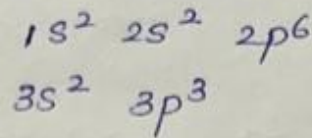 1s² 2s² 2p⁶
3s² 3p³